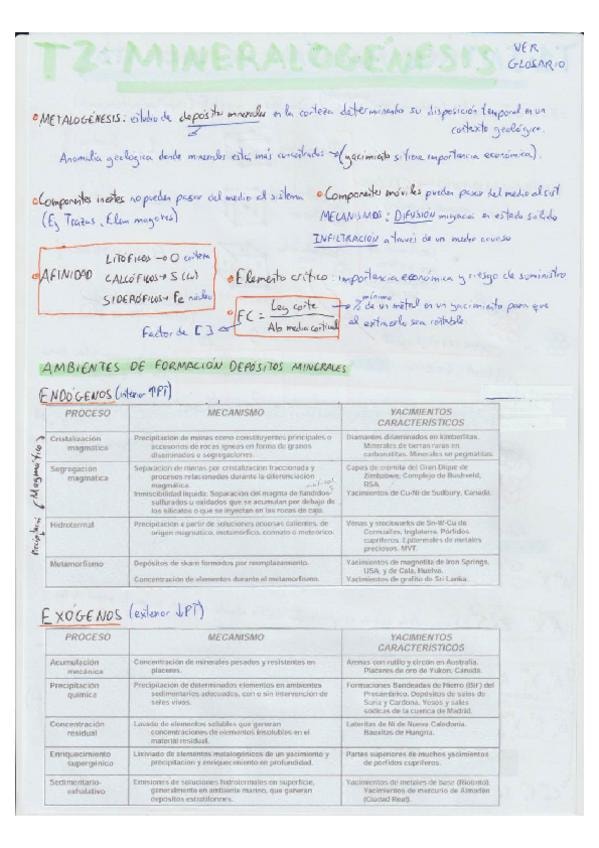 T2: MINERALOGÉNESIS
VER
GLOSARIO
METALOGÉNESIS: estudio de depósitos minerales en la corteza determinando su disposición temporal en un
contexto geológico.
Anomalía geológica donde minerales están más concentrados → (yacimiento si tiene importancia económica).
Componentes inertes no pueden pasar del medio al sistema
(Ej Trazas, Elem mayores)
Componentes móviles pueden pasar del medio al sist
MECANISMOS: DIFUSIÓN migración en estado sólido
INFILTRACIÓN a través de un medio acuoso
AFINIDAD
LITÓFILOS → O corteza
CALCÓFILOS → S (Cu)
SIDERÓFILOS → Fe núcleo
Elemento crítico: importancia económica y riesgo de suministro
FC = Ley corte
Ab media cortical
→ % mínimo de un metal en un yacimiento para que
al extraerlo sea rentable.
Factor de [ ]
AMBIENTES DE FORMACIÓN DEPÓSITOS MINERALES
ENDÓGENOS (interior ↑PT)
PROCESO MECANISMO YACIMIENTOS
CARACTERÍSTICOS
Magmático
Cristalización
magmática
Precipitación de menas como constituyentes principales o
accesorios de rocas ígneas en forma de granos
diseminados o segregaciones.
Diamantes diseminados en kimberlitas.
Minerales de tierras raras en
carbonatitas. Minerales en pegmatitas.
Segregación
magmática
Separación de menas por cristalización fraccionada y
procesos relacionados durante la diferenciación
magmática.
Inmiscibilidad líquida: Separación del magma de fundidos
sulfurados u oxidados que se acumulan por debajo de
los silicatos o que se inyectan en las rocas de caja.
Capas de cromita del Gran Dique de
Zimbabwe; Complejo de Bushveld,
RSA.
Yacimientos de Cu-Ni de Sudbury, Canadá.
Hidrotermal
Precipitación a partir de soluciones acuosas calientes, de
origen magmático, metamórfico, connato o meteórico.
Venas y stockworks de Sn-W-Cu de
Cornualles, Inglaterra. Pórfidos
cupríferos. Epitermales de metales
preciosos. MVT.
Metamorfismo
Depósitos de skarn formados por reemplazamiento.
Concentración de elementos durante el metamorfismo.
Yacimientos de magnetita de Iron Springs,
USA, y de Cala, Huelva.
Yacimientos de grafito de Sri Lanka.
EXÓGENOS (exterior ↓PT)
PROCESO MECANISMO YACIMIENTOS
CARACTERÍSTICOS
Acumulación
mecánica
Concentración de minerales pesados y resistentes en
placeres.
Arenas con rutilo y circón en Australia.
Placeres de oro de Yukon, Canadá.
Precipitación
química
Precipitación de determinados elementos en ambientes
sedimentarios adecuados, con o sin intervención de
seres vivos.
Formaciones Bandeadas de Hierro (BIF) del
Precámbrico. Depósitos de sales de
Suria y Cardona. Yesos y sales
sódicas de la cuenca de Madrid.
Concentración
residual
Lavado de elementos solubles que generan
concentraciones de elementos insolubles en el
material residual.
Lateritas de Ni de Nueva Caledonia.
Bauxitas de Hungría.
Enriquecimiento
supergénico
Lixiviado de elementos metalogénicos de un yacimiento y
precipitación y enriquecimiento en profundidad.
Partes superiores de muchos yacimientos
de pórfidos cupríferos.
Sedimentario-
exhalativo
Emisiones de soluciones hidrotermales en superficie,
generalmente en ambiente marino, que generan
depósitos estratiformes.
Yacimientos de metales de base (Riotinto).
Yacimientos de mercurio de Almadén
(Ciudad Real).